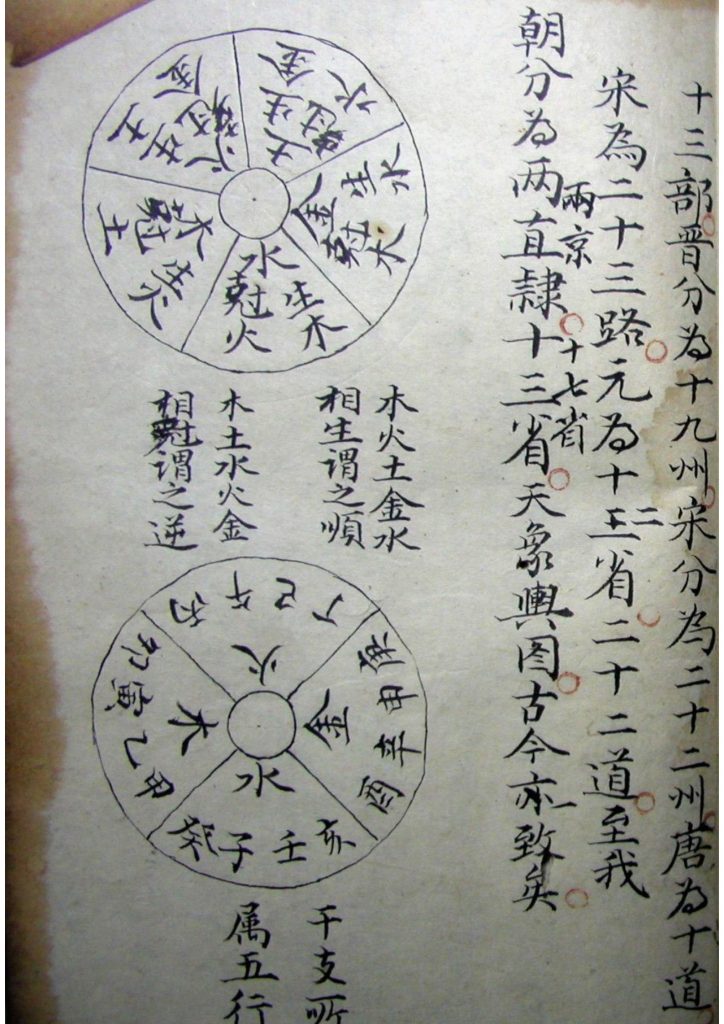 十三部晋分为十九州宋分為二十二州唐为十道
宋為二十三路元为十三省二十二道至我
二
朝分为两直隸十三省天象輿图古今亦一致矣
兩京
十七省
木火土金水
相生谓之順
木土水火金
相尅谓之逆
金生水
尅木
水生木
尅火
木生火
尅土
火生土
尅金
土生金
尅水
火
丙巳午丁
金
庚申辛酉
水
亥壬子癸
木
甲乙寅卯
干支所
属五行